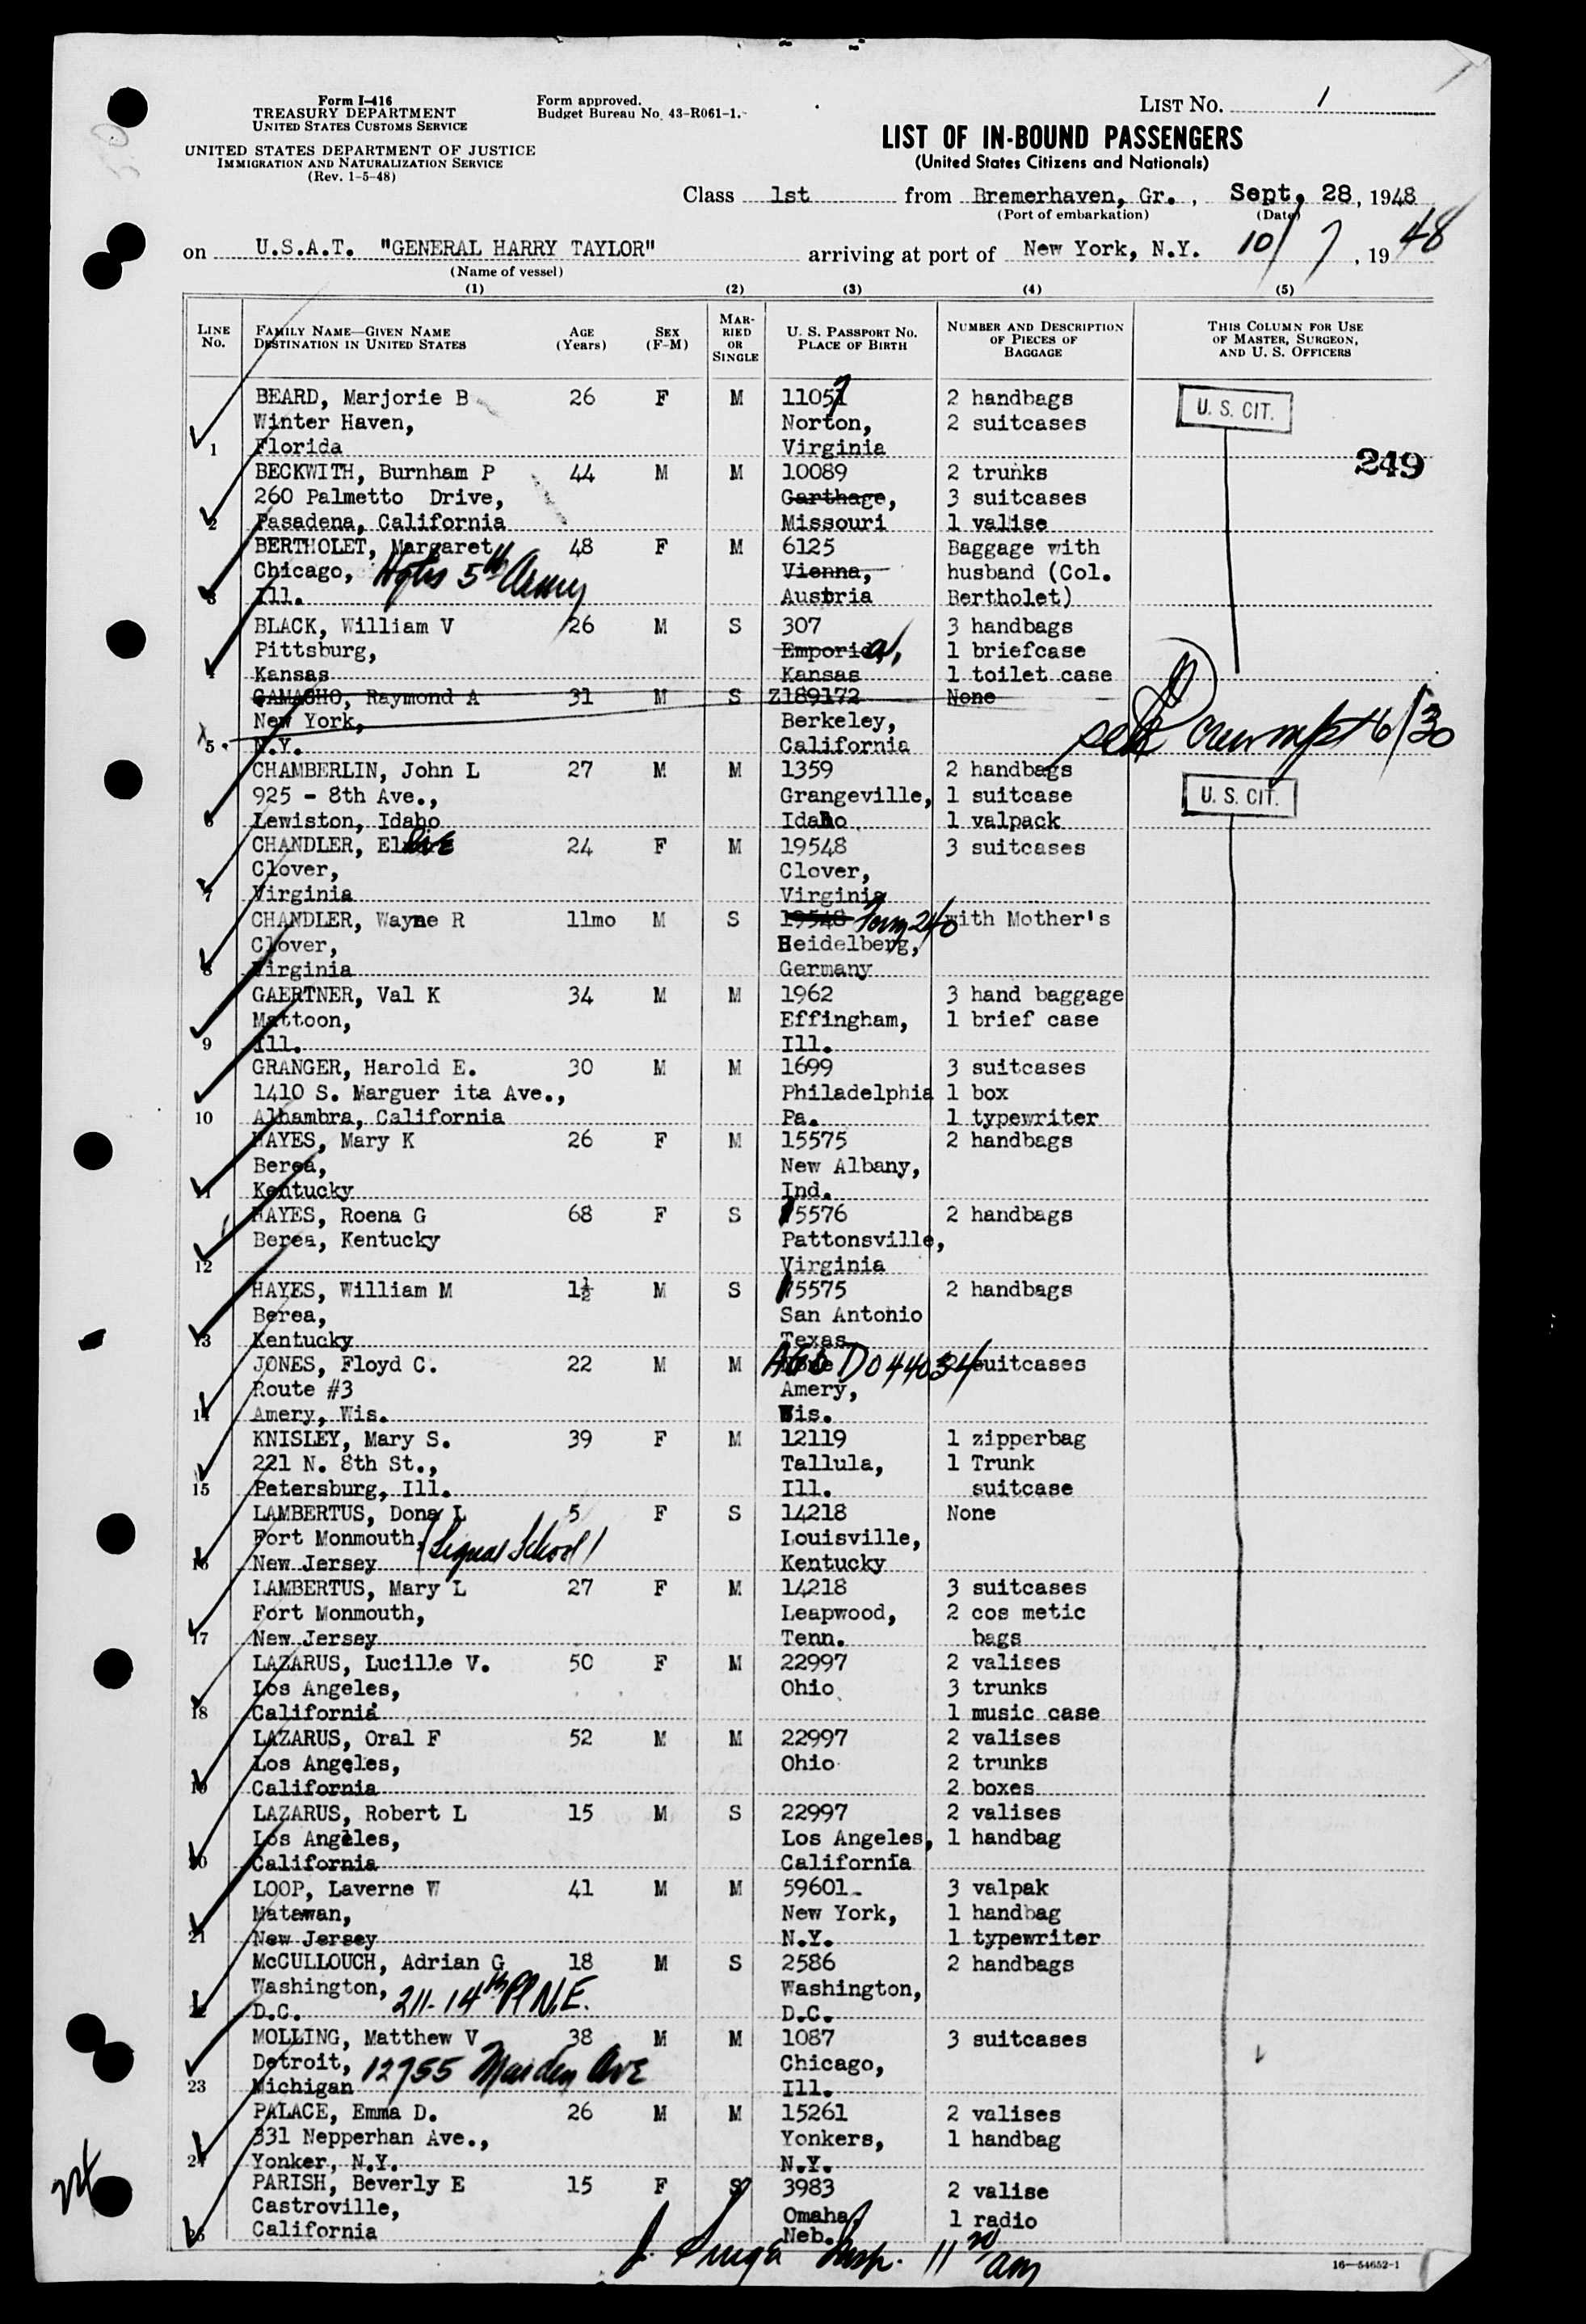 Form I-416
TREASURY DEPARTMENT
UNITED STATES CUSTOMS SERVICE
UNITED STATES DEPARTMENT OF JUSTICE
IMMIGRATION AND NATURALIZATION SERVICE
(Rev. 1-5-48)
Form approved.
Budget Bureau No. 43-R061-1.
LIST No. 1
LIST OF IN-BOUND PASSENGERS
(United States Citizens and Nationals)
Class 1st from Bremerhaven, Gr., Sept. 28, 1948
(Port of embarkation) (Date)
on U.S.A.T. "GENERAL HARRY TAYLOR" arriving at port of New York, N.Y. 10/7, 1948
(Name of vessel)
(1) (2) (3) (4) (5)
LINE No. FAMILY NAME—GIVEN NAME DESTINATION IN UNITED STATES AGE (Years) SEX (F-M) MARRIED OR SINGLE U. S. PASSPORT No. PLACE OF BIRTH NUMBER AND DESCRIPTION OF PIECES OF BAGGAGE THIS COLUMN FOR USE OF MASTER, SURGEON, AND U. S. OFFICERS
BEARD, Marjorie B 26 F M 11057 2 handbags U. S. CIT.
Winter Haven, Norton, 2 suitcases
1 Florida Virginia
249
BECKWITH, Burnham P 44 M M 10089 2 trunks
260 Palmetto Drive, Garthage, 3 suitcases
2 Pasadena, California Missouri 1 valise
BERTHOLET, Margaret 48 F M 6125 Baggage with
Chicago, Hqtrs 5th Army Vienna, husband (Col.
3 Ill. Austria Bertholet)
BLACK, William V 26 M S 307 3 handbags
Pittsburg, Emporia, 1 briefcase
4 Kansas Kansas 1 toilet case
GAMACHO, Raymond A 31 M S Z189172 None
New York, Berkeley,
5 N.Y. California
CHAMBERLIN, John L 27 M M 1359 2 handbags
925 - 8th Ave., Grangeville, 1 suitcase U. S. CIT.
6 Lewiston, Idaho Idaho 1 valpack
CHANDLER, 24 F M 19548 3 suitcases
Clover, Clover,
7 Virginia Virginia
CHANDLER, Wayne R 11mo M S 19548 Form 240 with Mother's
Clover, Heidelberg,
8 Virginia Germany
GAERTNER, Val K 34 M M 1962 3 hand baggage
Mattoon, Effingham, 1 brief case
9 Ill. Ill.
GRANGER, Harold E. 30 M M 1699 3 suitcases
1410 S. Marguer ita Ave., Philadelphia 1 box
10 Alhambra, California Pa. 1 typewriter
HAYES, Mary K 26 F M 15575 2 handbags
Berea, New Albany,
11 Kentucky Ind.
HAYES, Roena G 68 F S 15576 2 handbags
Berea, Kentucky Pattonsville,
12 Virginia
HAYES, William M 1½ M S 15575 2 handbags
Berea, San Antonio
13 Kentucky Texas
JONES, Floyd C. 22 M M AGO D044034 suitcases
Route #3 Amery,
14 Amery, Wis. Wis.
KNISLEY, Mary S. 39 F M 12119 1 zipperbag
221 N. 8th St., Tallula, 1 Trunk
15 Petersburg, Ill. Ill. suitcase
LAMBERTUS, Dona L 5 F S 14218 None
Fort Monmouth, (Signal School) Louisville,
16 New Jersey Kentucky
LAMBERTUS, Mary L 27 F M 14218 3 suitcases
Fort Monmouth, Leapwood, 2 cos metic
17 New Jersey Tenn. bags
LAZARUS, Lucille V. 50 F M 22997 2 valises
Los Angeles, Ohio 3 trunks
18 California 1 music case
LAZARUS, Oral F 52 M M 22997 2 valises
Los Angeles, Ohio 2 trunks
19 California 2 boxes
LAZARUS, Robert L 15 M S 22997 2 valises
Los Angeles, Los Angeles, 1 handbag
20 California California
LOOP, Laverne W 41 M M 59601 3 valpak
Matawan, New York, 1 handbag
21 New Jersey N.Y. 1 typewriter
McCULLOUCH, Adrian G 18 M S 2586 2 handbags
Washington, 211-14th Pl N.E. Washington,
22 D.C. D.C.
MOLLING, Matthew V 38 M M 1087 3 suitcases
Detroit, 12755 Ave Chicago,
23 Michigan Ill.
PALACE, Emma D. 26 M M 15261 2 valises
331 Nepperhan Ave., Yonkers, 1 handbag
24 Yonker, N.Y. N.Y.
PARISH, Beverly E 15 F S 3983 2 valise
Castroville, Omaha, 1 radio
25 California Neb.
Insp. 11 20 am
16—54652-1